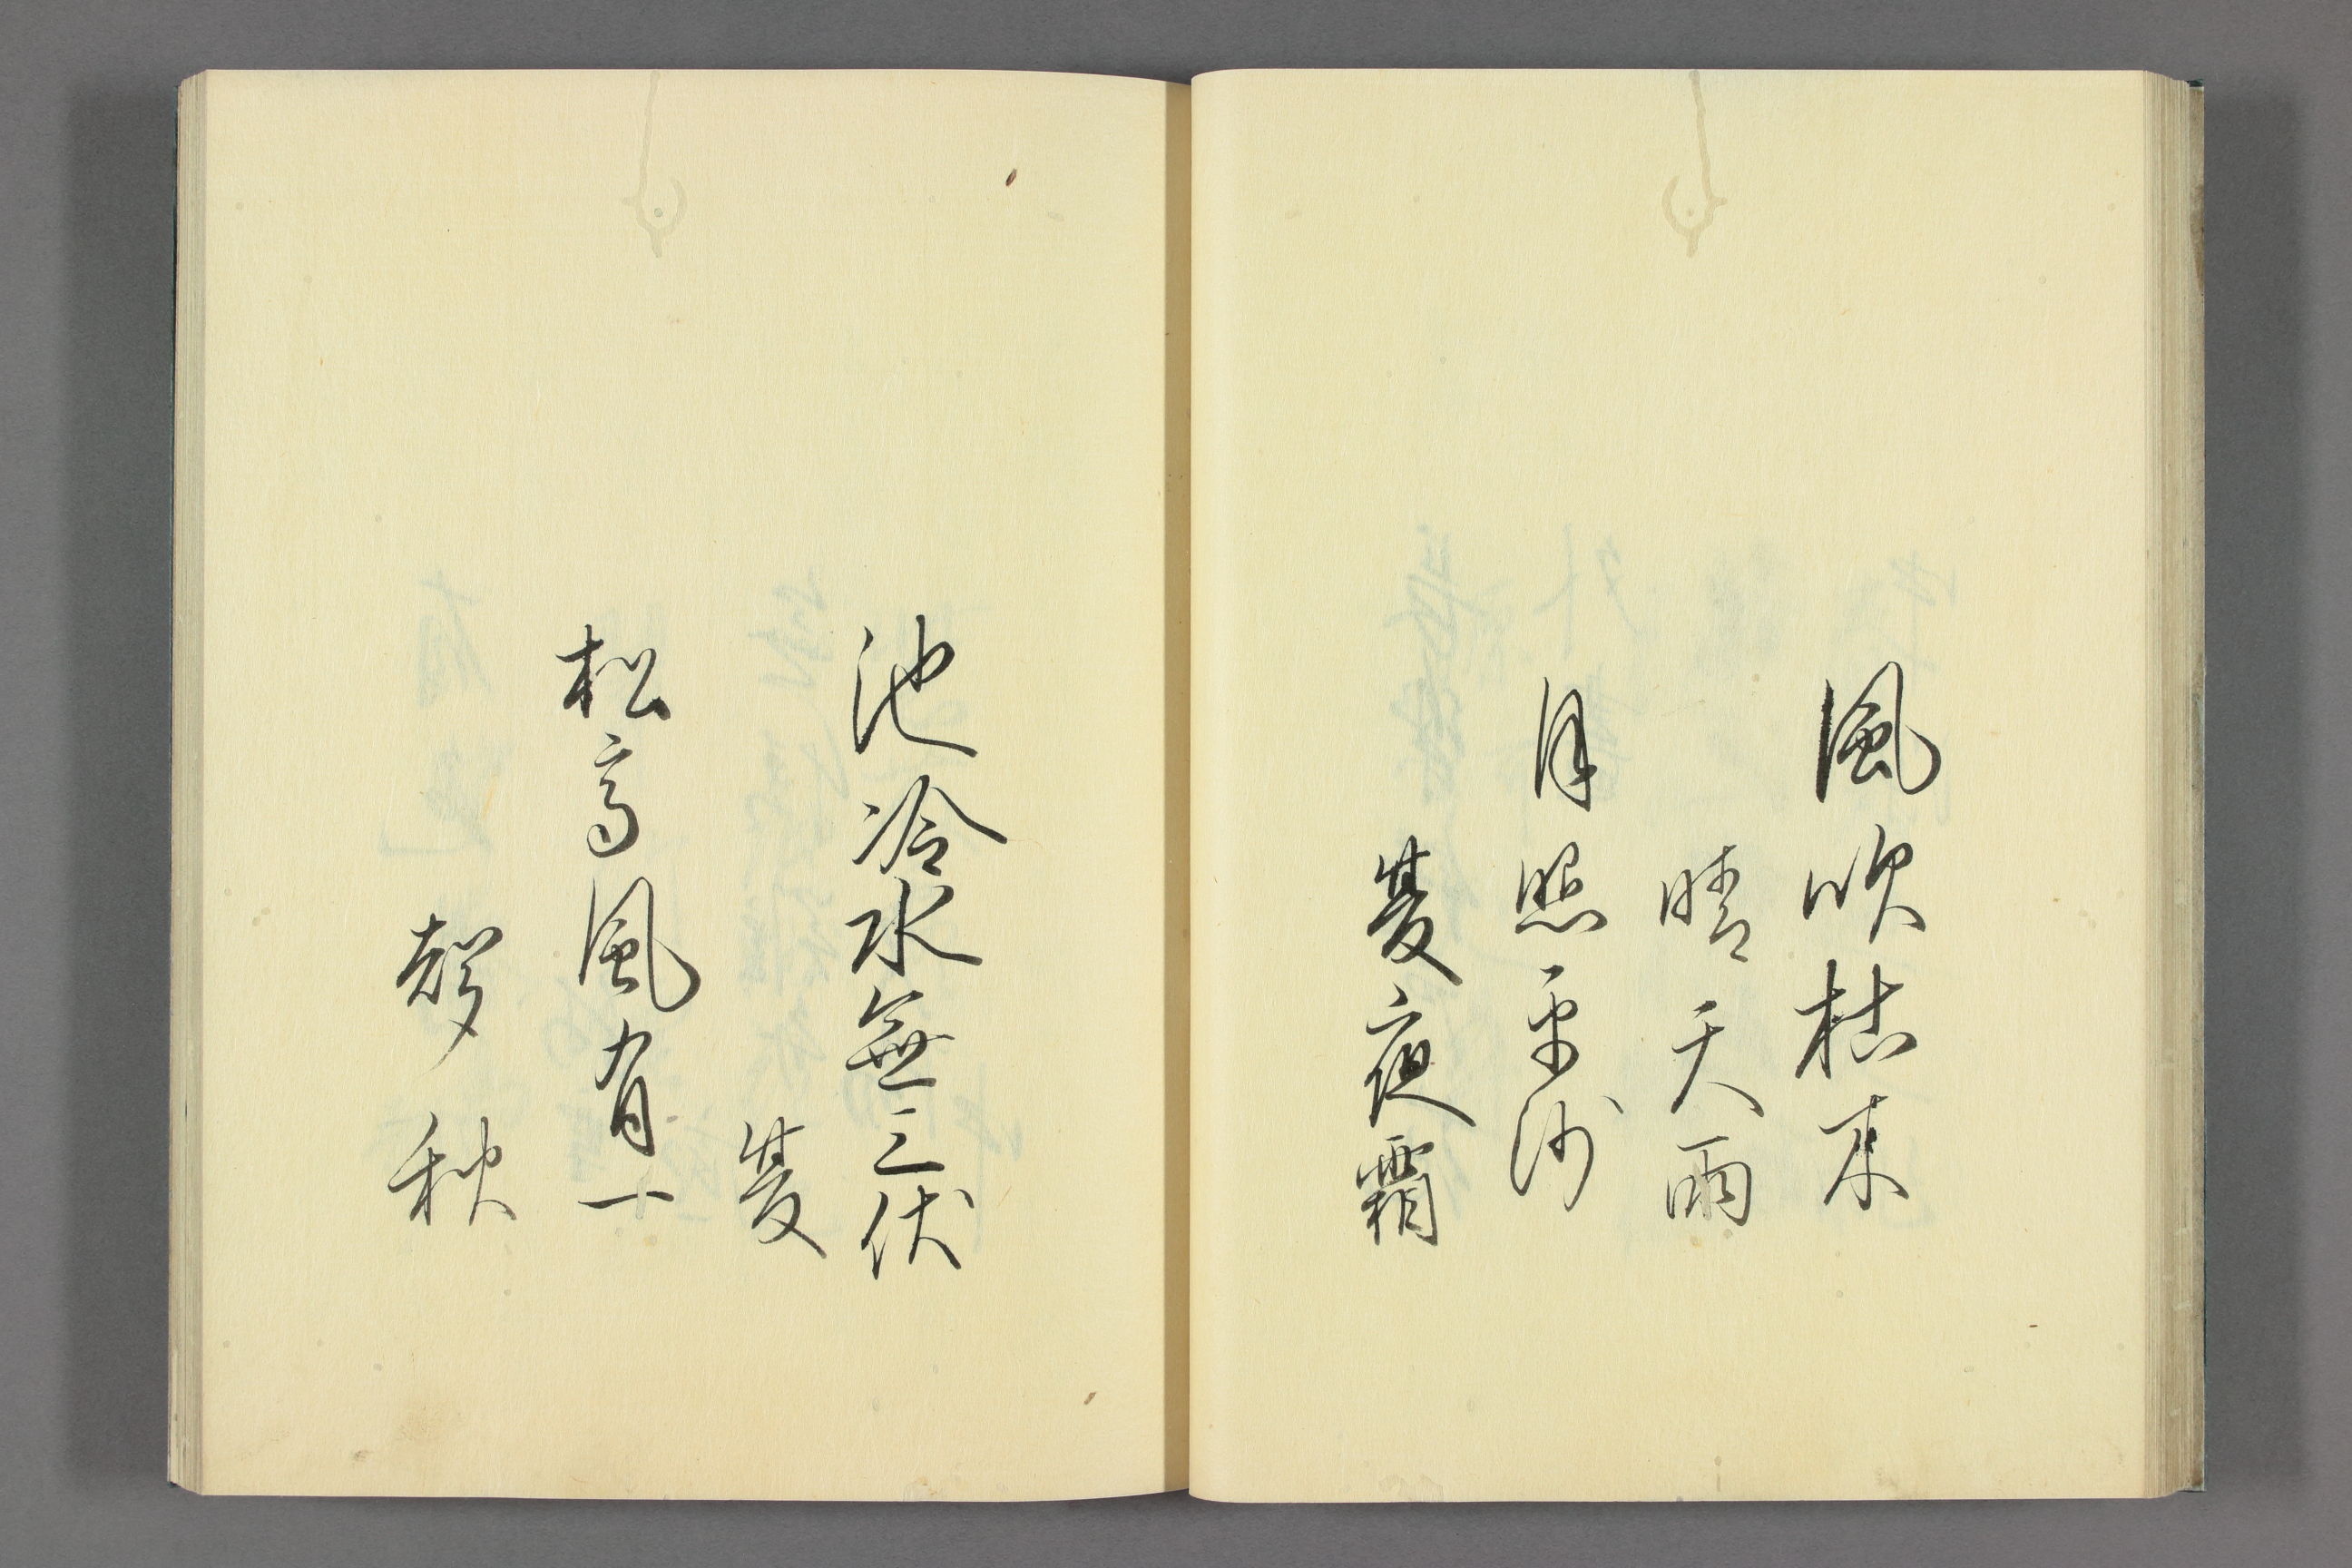 風吹枯木
晴天雨
月照平沙
夏夜霜
池冷水無三伏
夏
松高風有一
聲秋